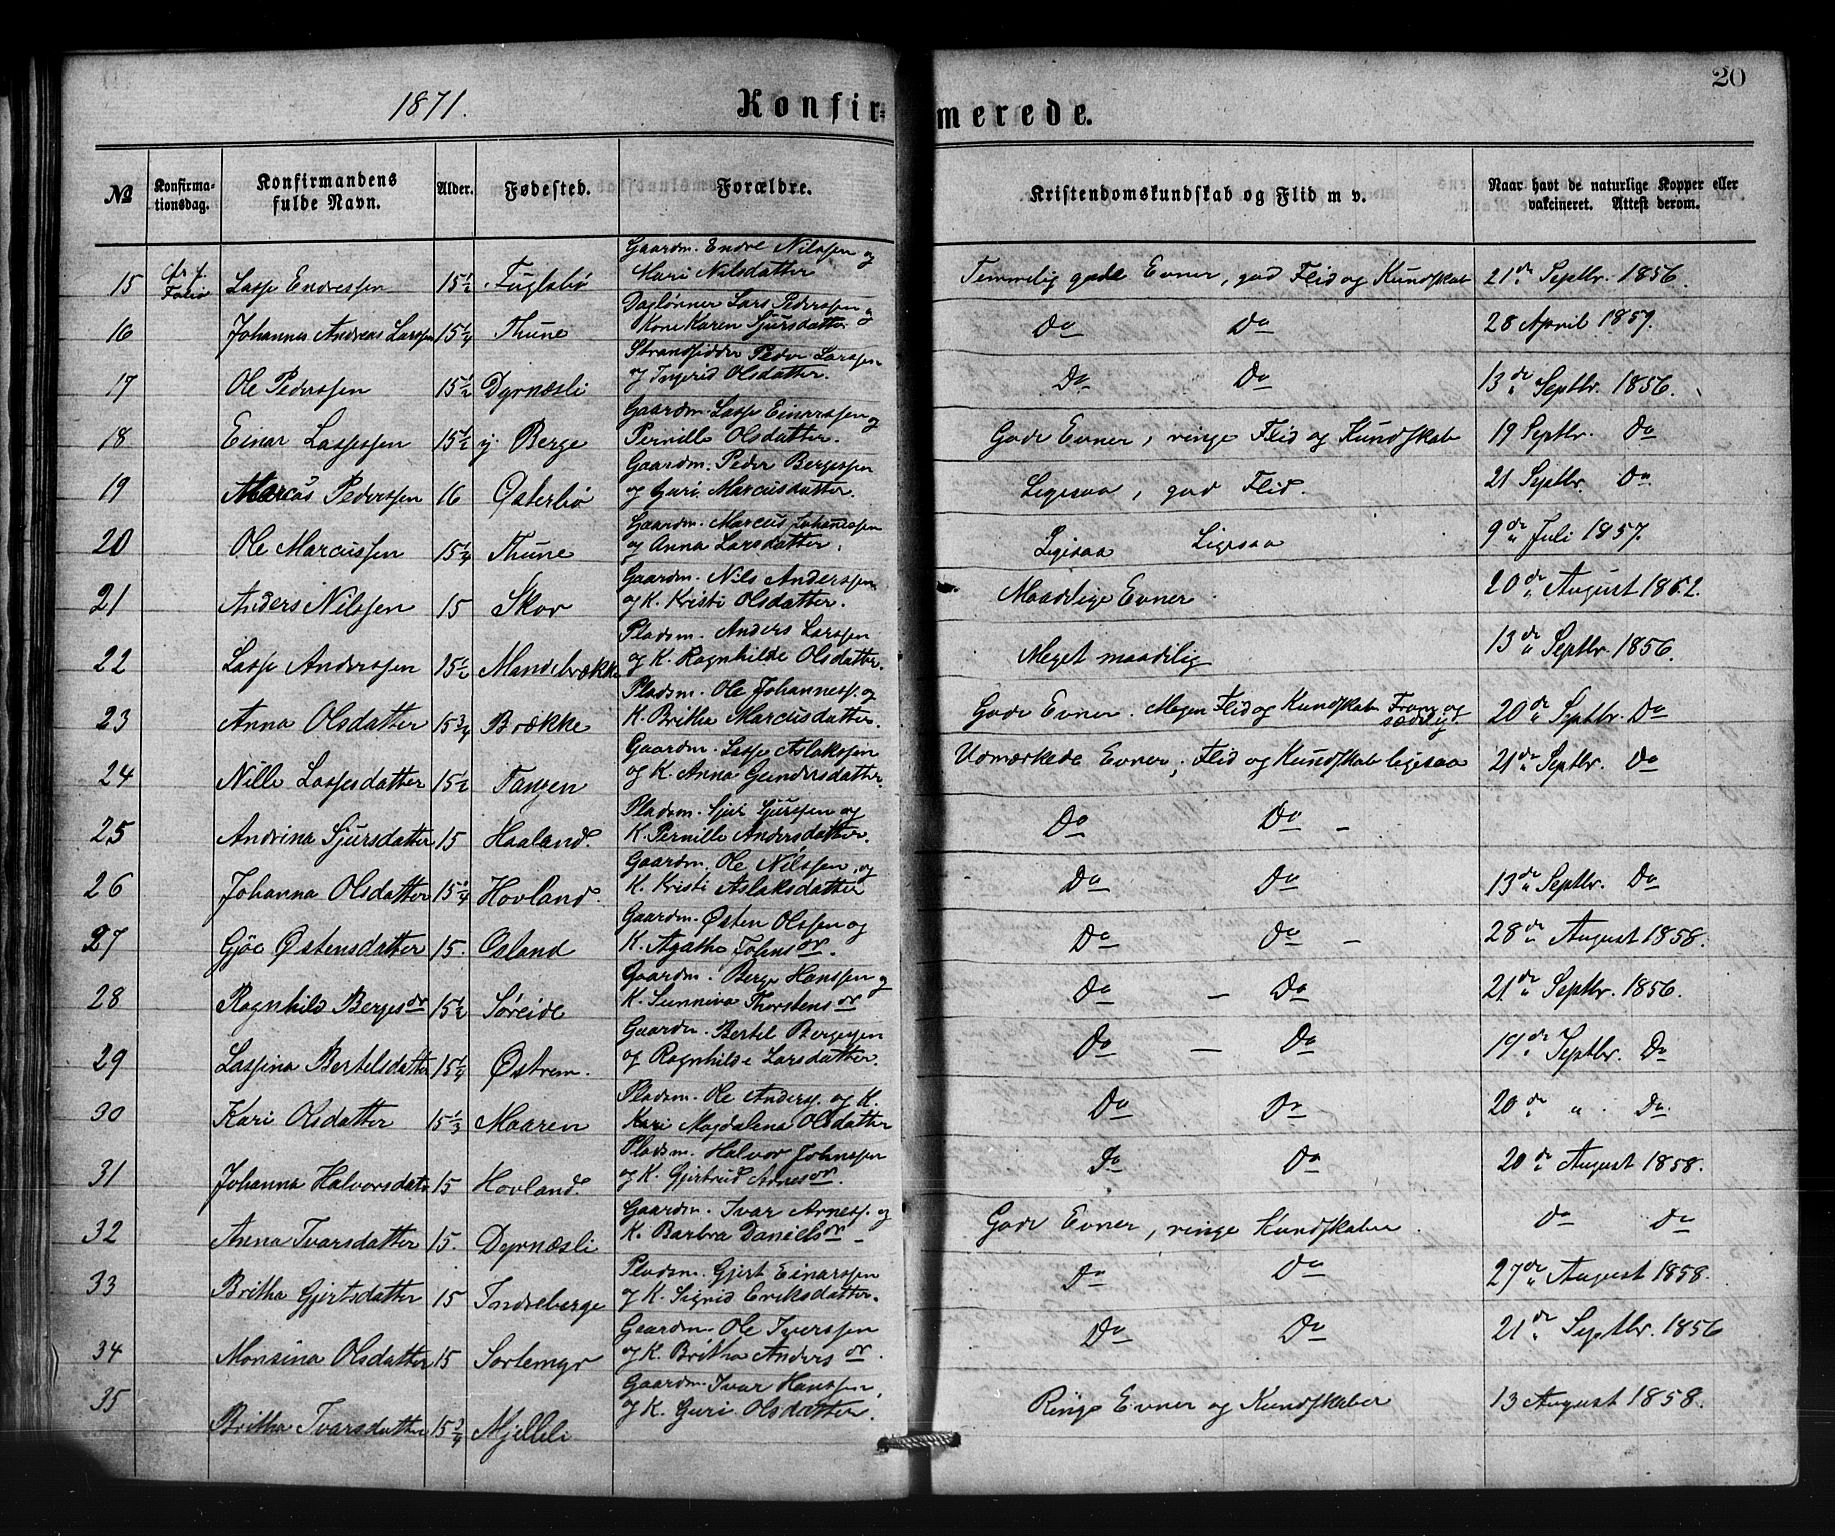 20
1871. Konfirmerede.
№ Konfirmationsdag. Konfirmandens fulde Navn. Alder. Fødested. Forældre. Kristendomskundskab og Flid m v. Naar havt de naturlige Kopper eller vakcineret. Attest derom.
15 Lasse Endressen 15½ Fuglebø Gaardm. Endre Nilssen og Mari Nilsdatter Temmelig gode Evner, god Flid og Kundskab 21de Septbr. 1856.
16 Johannes Andreas Larssen 15¼ Thune Daglønner Lars Pederssen og Kone Karen Sjursdatter Do Do 28 April 1857.
17 Ole Pederssen 15½ Dyrnæsli Strandsidder Peder Larssen og Ingerid Olsdatter. Do Do 13de Septbr. 1856.
18 Einar Lassessen 15½ y. Berge Gaardm. Lasse Einerssen og Pernille Olsdatter. Gode Evner, ringe Flid og Kundskab 19 Septbr. Do
19 Marcus Pederssen 16 Østerbø Gaardm. Peder Bergessen og Guri Marcusdatter. Ligesaa, god Flid. 21 Septbr. Do
20 Ole Marcussen 15¼ Thune Gaardm. Marcus Johanessen og Anna Larsdatter. Ligesaa Ligesaa 9de Juli 1857.
21 Anders Nilssen 15 Skor Gaardm. Nils Anderssen og K. Kristi Olsdatter. Maadelige Evner. 20de August 1862.
22 Lasse Anderssen 15½ Mandebrække Pladsm. Anders Larssen og K. Ragnhilde Olsdatter. Meget maadelig 13de Septbr. 1856.
23 Anna Olsdatter 15¾ Brække Pladsm. Ole Johanness. og K. Britha Marcusdatter. Gode Evner. Megen Flid og Kundskab From og sædelig 20de Septbr. Do
24 Nille Lassesdatter 15½ Tangen Gaardm. Lasse Aslakssen og K. Anna Gundersdatter. Udmærkede Evner, Flid og Kundskab ligesaa 21de Septbr. Do
25 Andrina Sjursdatter 15 Haaland. Pladsm. Sjur Sjurssen og K. Pernille Andersdatter. Do Do –
26 Johanna Olsdatter 15¾ Hovland. Gaardm. Ole Nilssen og K. Kristi Aslaksdatter Do Do 13de Septbr. Do
27 Gjøe Østensdatter 15. Osland Gaardm. Østen Olssen og K. Agatha Johns dr. Do Do – 28de August 1858.
28 Ragnhild Berges dr 15½ Søreide Gaardm. Berge Hanssen og K. Sunniva Thorstens dr Do – Do 21de Septbr. 1856.
29 Lassina Bertelsdatter 15¼ Østrem. Gaardm. Bertel Bergessen og Ragnhilde Larsdatter. Do – Do 19de Septbr. Do
30 Kari Olsdatter 15⅓ Maaren Pladsm. Ole Anderss. og K. Kari Magdalena Olsdatter Do Do 20de " Do.
31 Johanna Halvorsdatr 15 Hovland. Pladsm. Halvor Johnssen og K. Gjertrud Arnes dr. Do Do 20de August 1858.
32 Anna Ivarsdatter 15. Dyrnæsli Gaardm. Ivar Arness. og K. Barbra Daniels dr – Gode Evner, ringe Kundskaber. Do Do
33 Britha Gjertsdatter 15 Indreberge Pladsm. Gjert Einarssen og K. Sigrid Eriksdatter. Do Do 27de August 1858.
34 Monsina Olsdatter 15 Sortemyr Gaardm. Ole Iverssen og K. Britha Anders dr. Do Do 21de Septbr. 1856
35 Britha Ivarsdatter 15¾ Mjelleli Gaardm. Ivar Hanssen, og K. Guri Olsdatter. Ringe Evner og Kundskaber 13 August 1858.